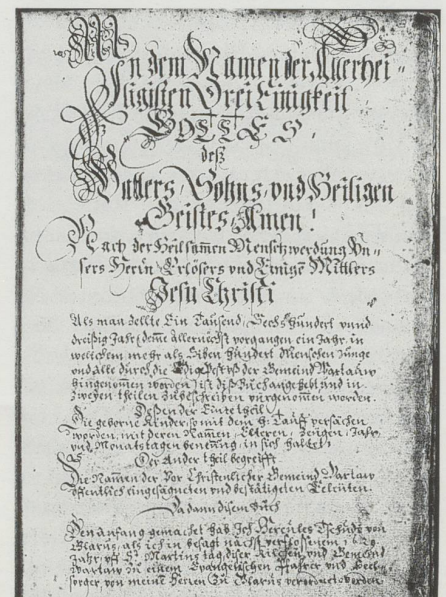 In dem Namen der Allerhei-
ligisten Drei Einigkeit
GOTTES,
deß
Vatters, Sohns, vnd Heiligen
Geistes, Amen!
Nach der Heilsamen Menschwerdung Vn-
sers Herrn Erlösers vnd Einigē Mittlers
Jesu Christi
Als man zellte Ein Tausend, Sechs Hundert vnnd
dreißig Jahr, deme allernächst vorgangen ein Jahr, in
welichem mehr als Siben Hundert Menschen Junge
vnd Alte durch die Pest vß der Gemeind Wartauw
hingenommen worden, ist diß Buch angehebt vnd in
zweyen theilen zubeschreiben vorgenommen worden.
Dessen der Eine theil,
Die geborne Kinder, so mit dem H. Tauff versächen
worden, mit deren Namen, Elteren, Zeugen, Jahrs
vnd Monatstagen benennung, in sich haltet,
Der Ander theil begreifft
Die Namen der vor Christenlicher Gemeind Wartaw
offentlich eingesägneten vnd bestätigeten Eeleuten.
Da dann disem Buch
Den anfang gemachet hab Ich Hercules Tschudi von
Glarus, als ich in besagt nächst verflossenem 1629
Jahr, vff S. Martins tag, diser Kilchen vnd Gemeind
Wartaw zu einem Evangelischen Pfarrer vnd Seel-
sorger von meinē Herren Zu Glarus verordnet worden.